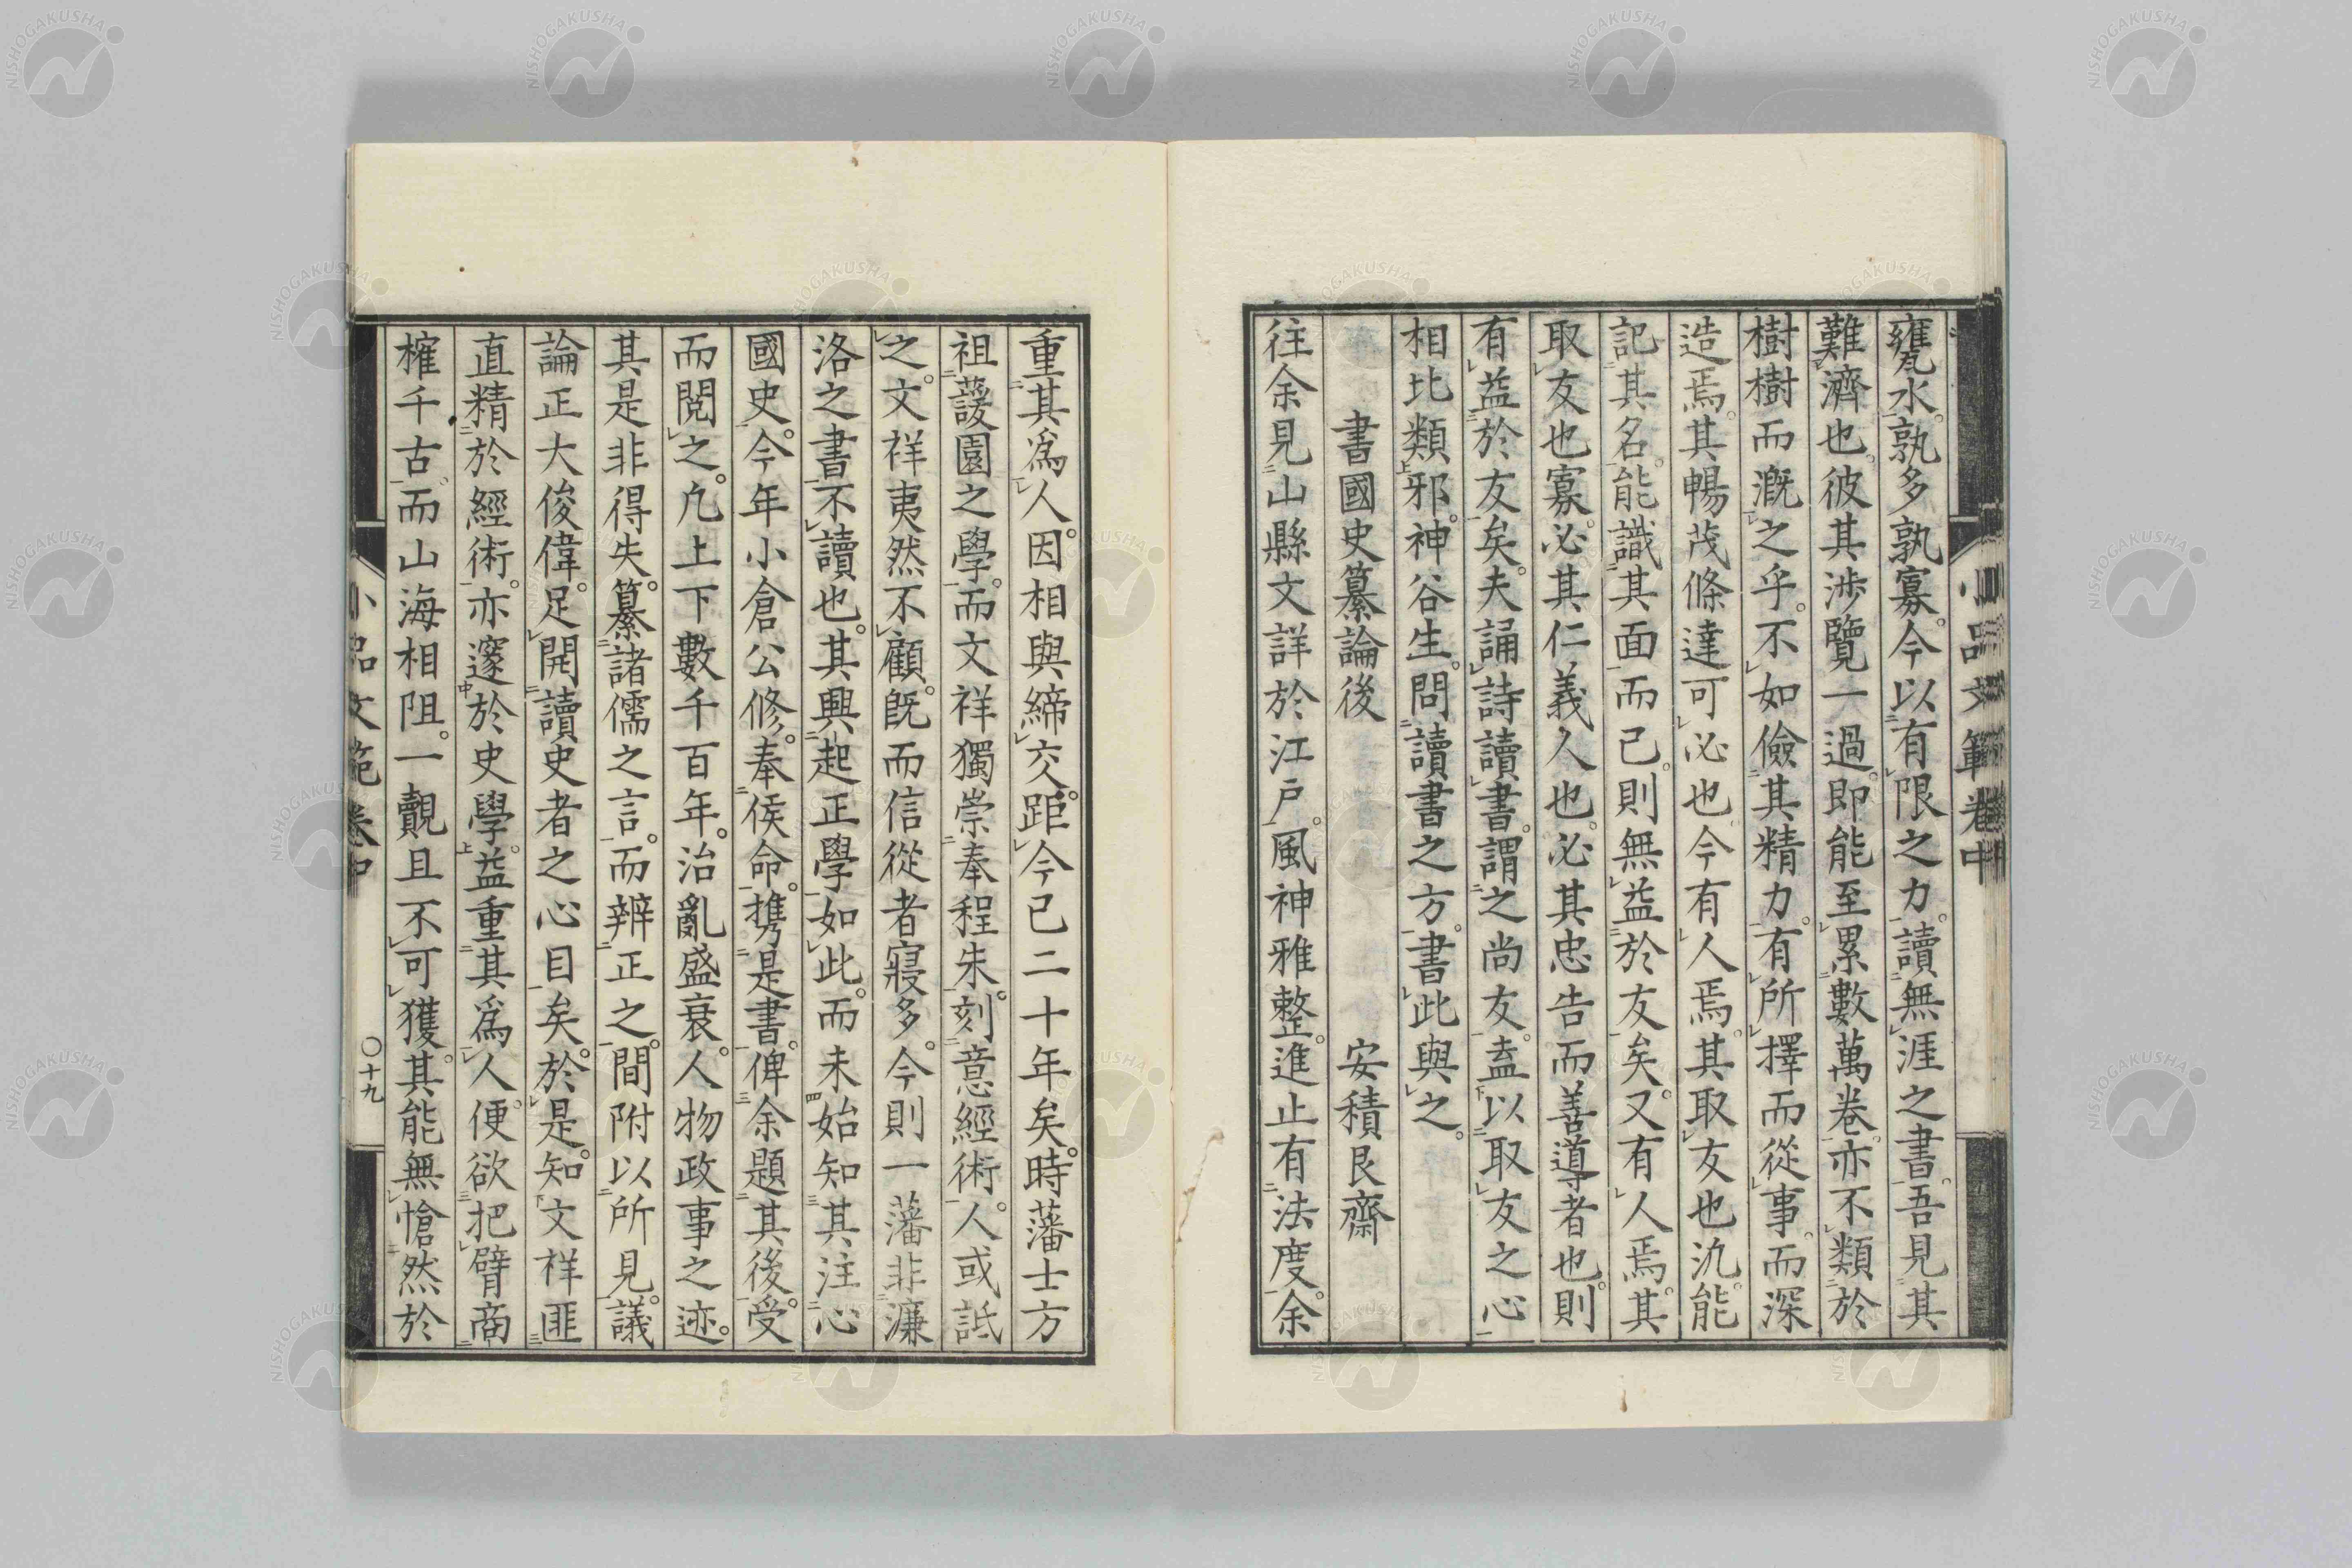 小品文範卷中
甕水。孰多孰寡。今以有限之力。讀無涯之書。吾見其
難濟也。彼其涉覽一過。即能至累數萬卷。亦不類於
樹樹而漑之乎。不如儉其精力。有所擇而從事。而深
造焉。其暢茂條達可必也。今有人焉。其取友也汎。能
記其名。能識其面而已。則無益於友矣。又有人焉。其
取友也寡。必其仁義人也。必其忠告而善導者也。則
有益於友矣。夫誦詩讀書。謂之尚友。盍以取友之心
相比類邪。神谷生。問讀書之方。書此與之。
書國史纂論後 安積艮齋
往余見山縣文詳於江戶。風神雅整。進止有法度。余
重其爲人。因相與締交。距今已二十年矣。時藩士方
祖蘐園之學。而文祥獨崇奉程朱。刻意經術。人或詆
之。文祥夷然不顧。既而信從者寢多。今則一藩非濂
洛之書。不讀也。其興起正學如此。而未始知其注心
國史。今年小倉公修。奉侯命。携是書。俾余題其後。受
而閱之。凢上下數千百年。治亂盛衰。人物政事之迹。
其是非得失。纂諸儒之言。而辨正之。間附以所見。議
論正大俊偉。足開讀史者之心目矣。於是。知文祥匪
直精於經術。亦邃於史學。益重其爲人。便欲把臂商
榷千古。而山海相阻。一覿且不可獲。其能無愴然於
小品文範卷中 〇十九
NISHOGAKUSHA